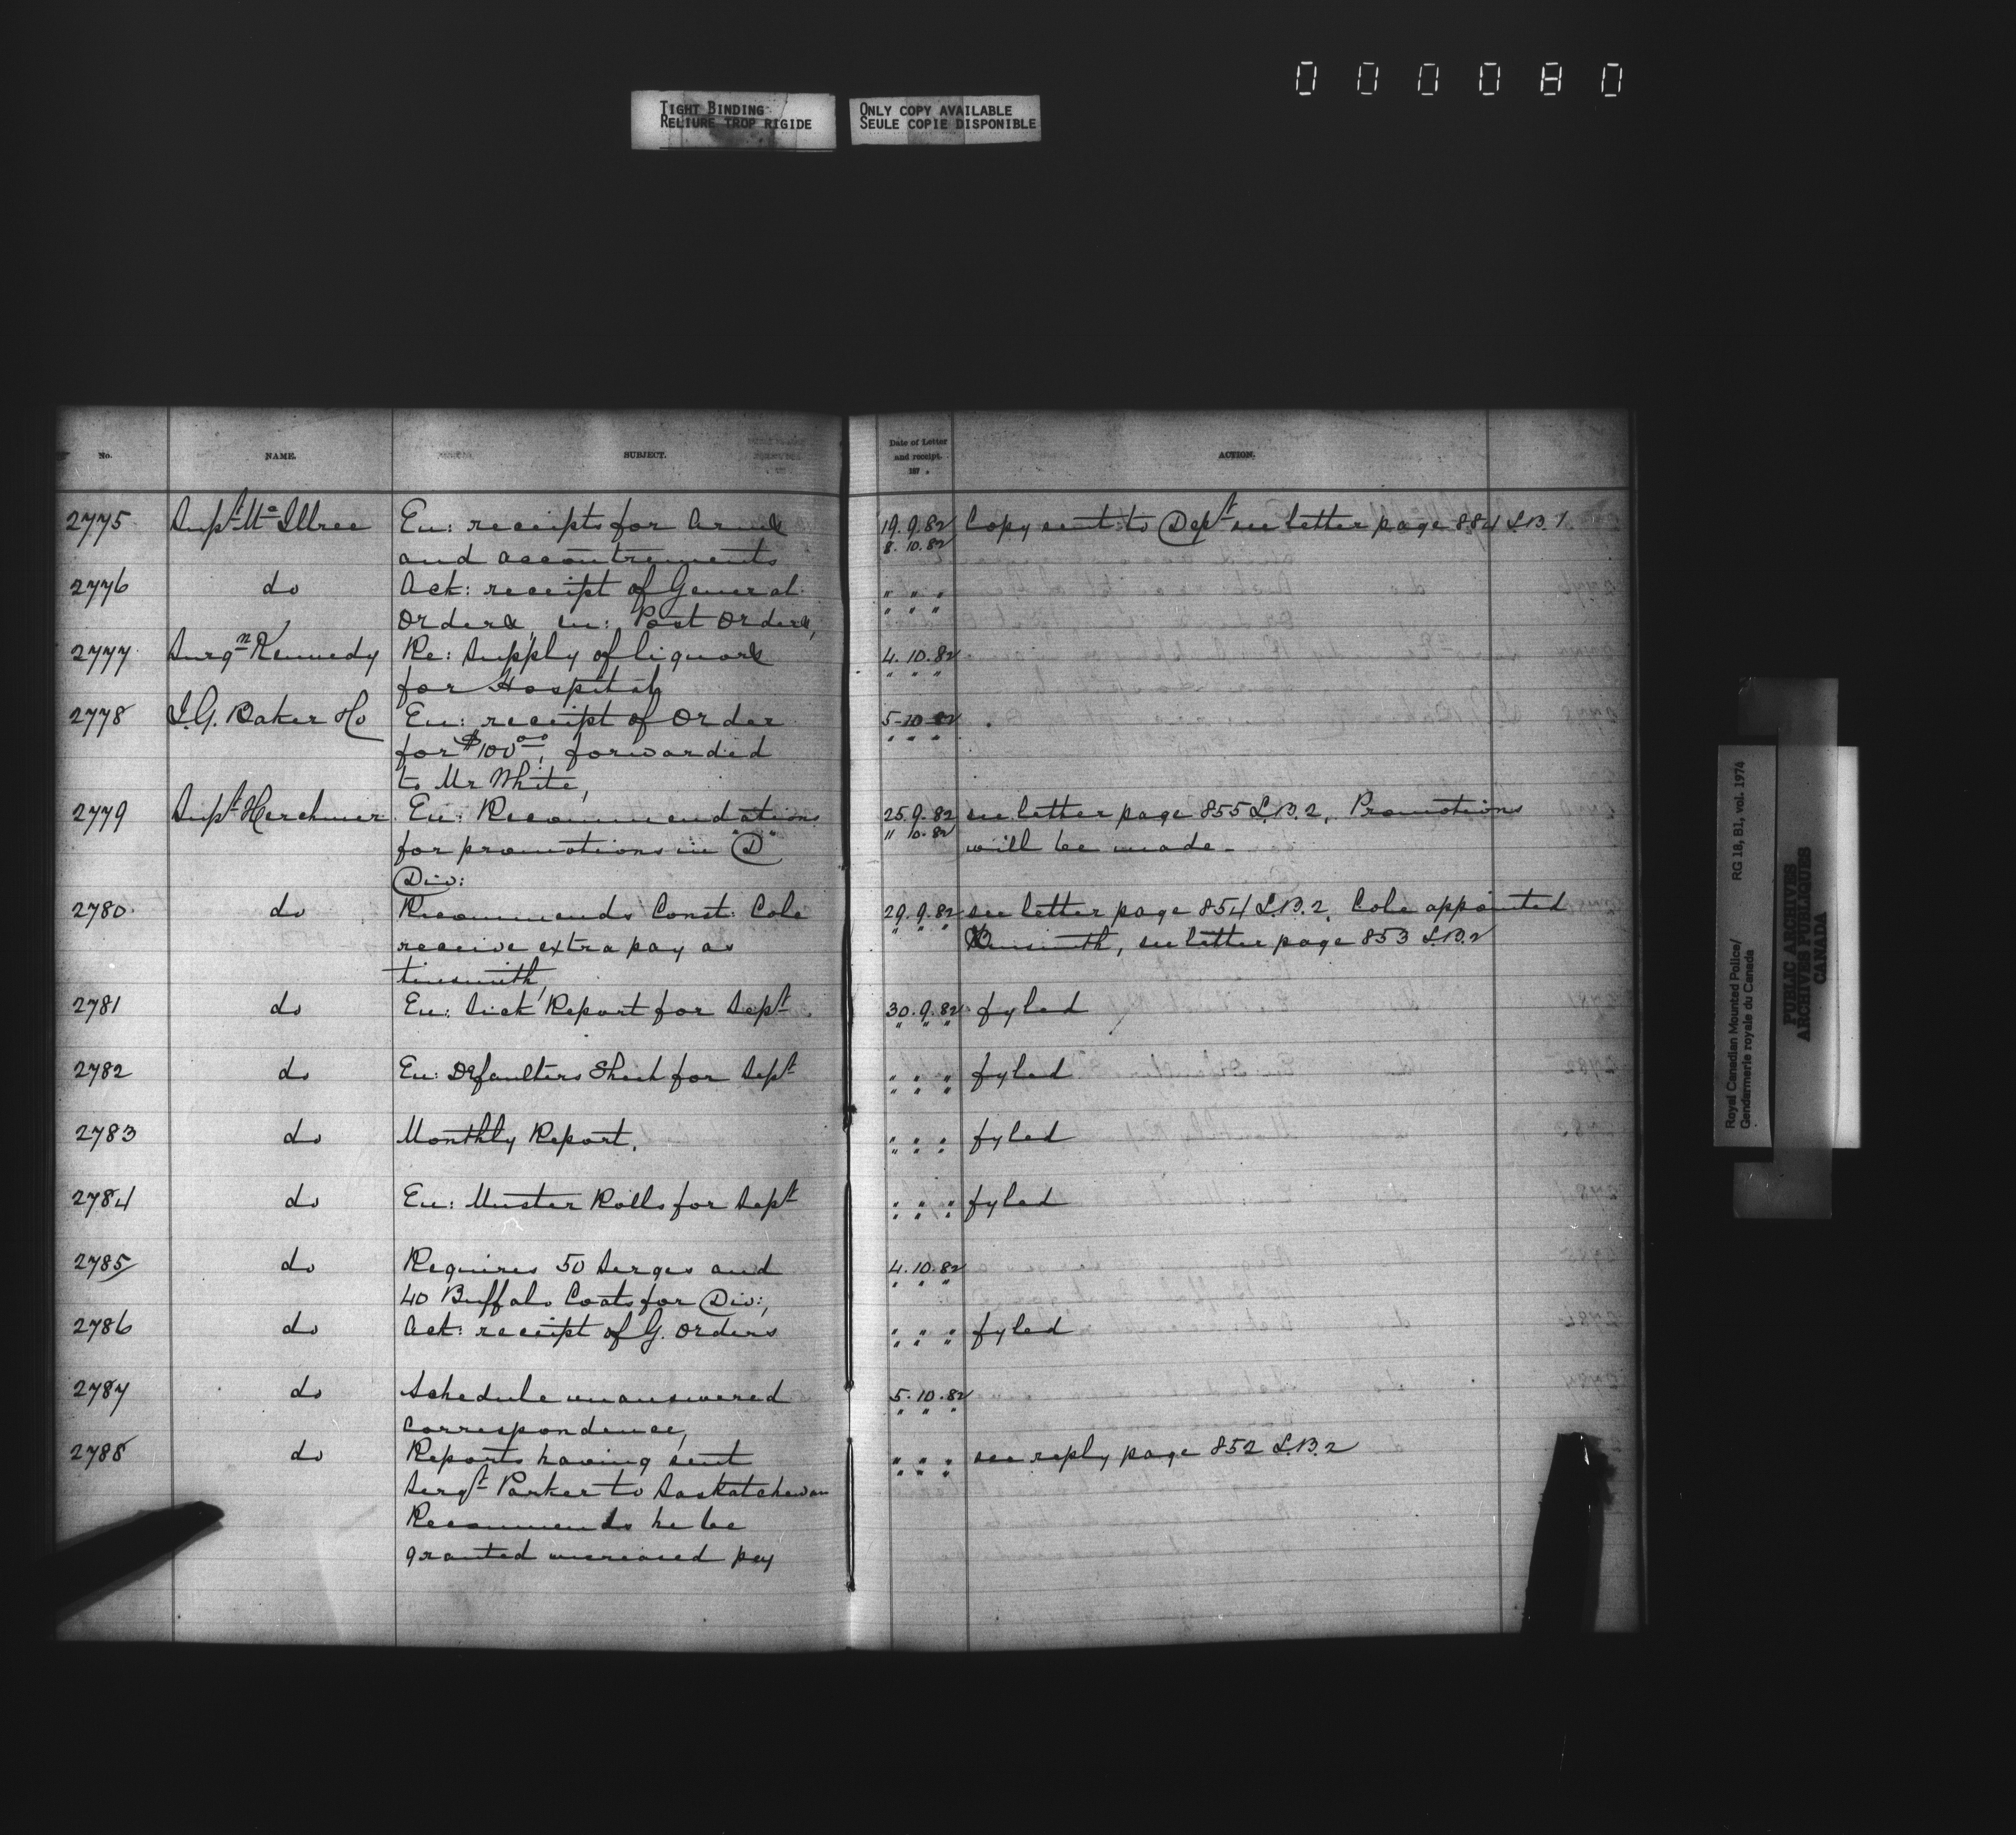 000080
TIGHT BINDING
RELIURE TROP RIGIDE
ONLY COPY AVAILABLE
SEULE COPIE DISPONIBLE
No. NAME. SUBJECT. Date of Letter and receipt. 187 . ACTION.
2775 Supt McIllree En: receipts for Arms 19.9.82 Copy sent to Dept see letter page 884 L.B.1
and accoutrements 8.10.82
2776 do Ack: receipt of General " " "
Orders, en: Post Orders, " " "
2777 Surgn Kennedy Re: Supply of liquors 4.10.82
for Hospital, " " "
2778 I.G. Baker Co En: receipt of Order 5-10-82
for $100.00, forwarded " " "
to Mr White,
2779 Supt Herchmer En: Recommendations 25.9.82 see letter page 855 L.B.2, Promotions
for promotions in "D" 11 10.82 will be made-
Div:
2780 do Recommends Const: Cole 29.9.82 see letter page 854 L.B.2, Cole appointed
receive extra pay as " " " see letter page 853 L.B.2
tinsmith,
2781 do En: Sick Report for Sept 30.9.82 fyled
" " "
2782 do En: Defaulters Sheet for Sept " " " fyled
" " "
2783 do Monthly Report. " " " fyled
" " "
2784 do En: Muster Rolls for Sept " " " fyled
" " "
2785 do Requires 50 Serges and 4.10.82
40 Buffalo Coats for Div:, " " "
2786 do Ack: receipt of G. Orders " " " fyled
" " "
2787 do Schedule unanswered 5.10.82
correspondence, " " "
2788 do Reports having sent " " " see reply page 852 L.B.2
Sergt Parker to Saskatchewan " " "
Recommends he be
granted increased pay
Royal Canadian Mounted Police/ RG 18, B1, vol. 1974
Gendarmerie royale du Canada
PUBLIC ARCHIVES
ARCHIVES PUBLIQUES
CANADA